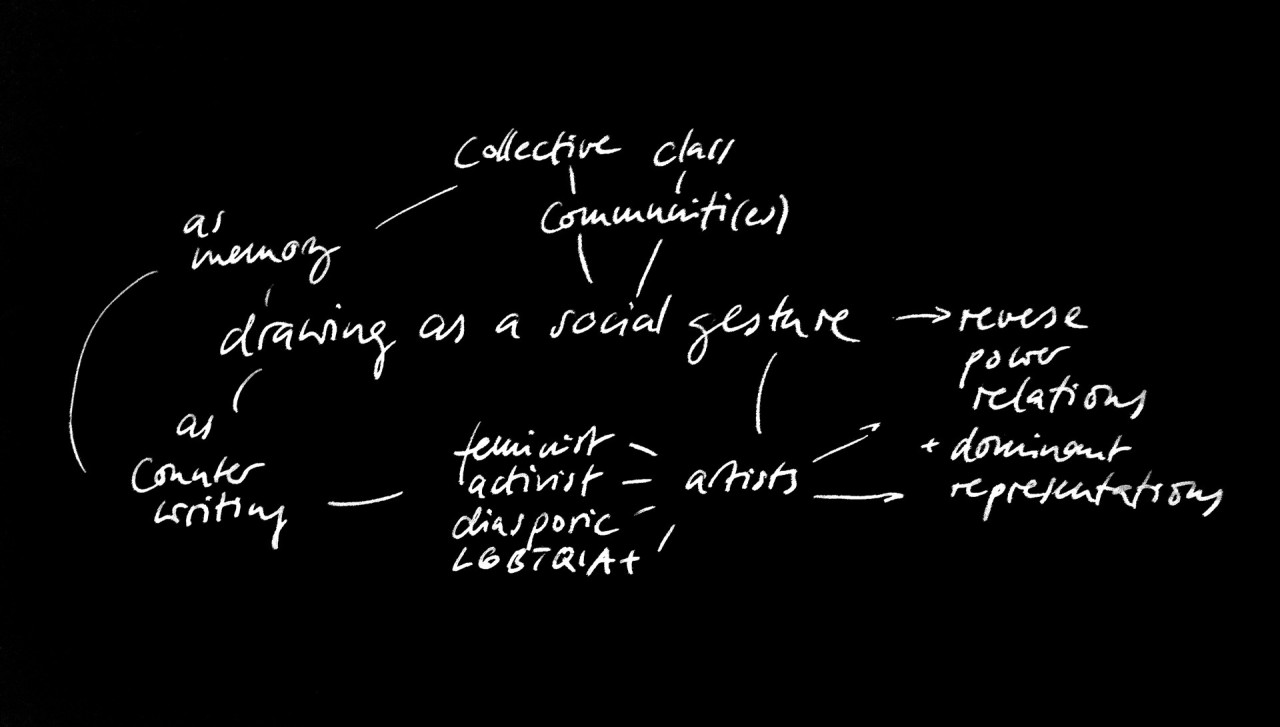 Collective class
Communiti(es)
as
memory
drawing as a social gesture
reverse
power
relations
+ dominant
representations
as
Counter
writing
feminist
activist
diasporic
LGBTQIA+
artists